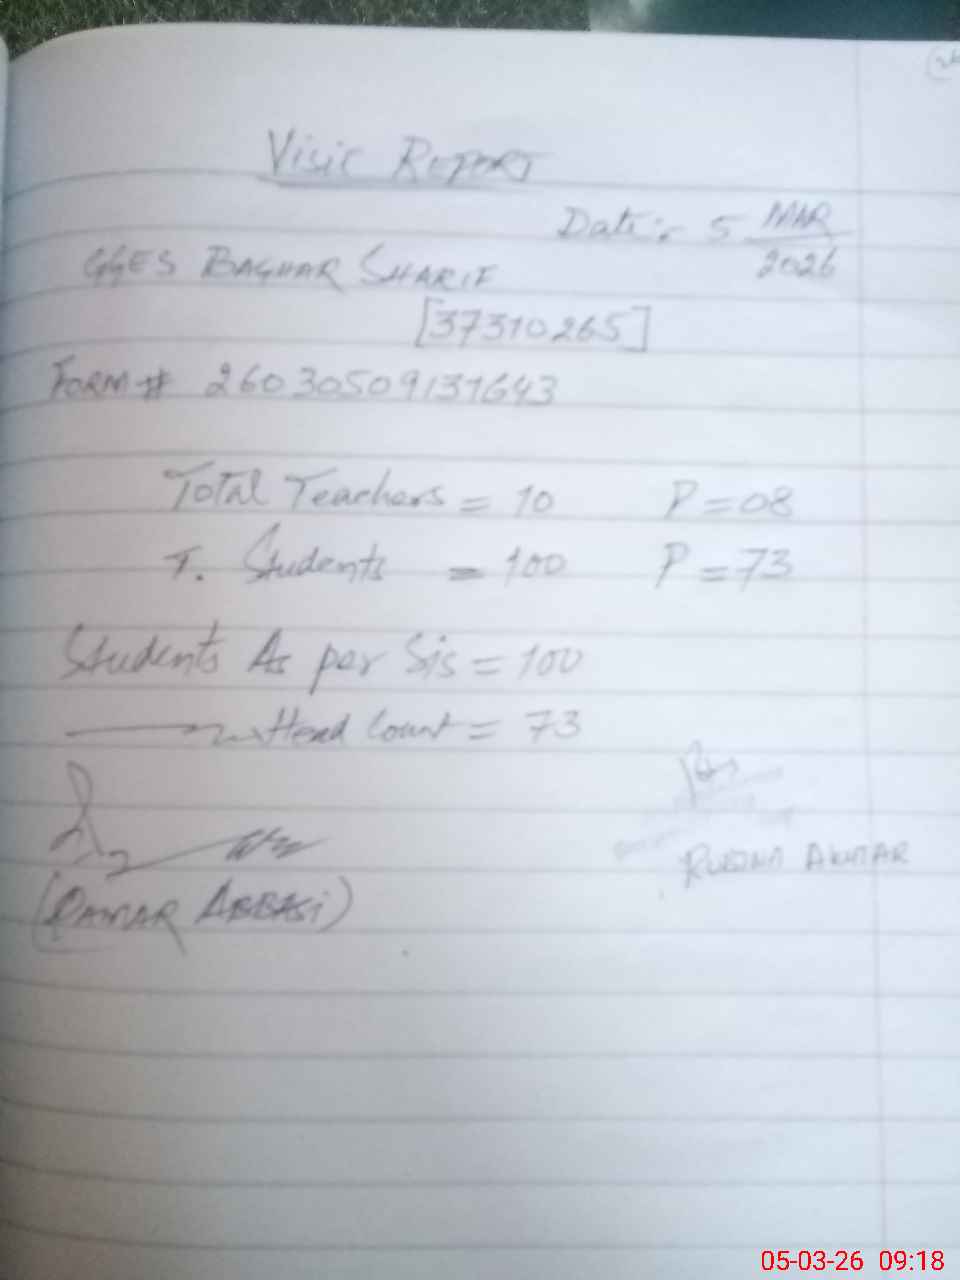 Visit Report
Date:- 5 MAR
2026
GGES BAGHAR SHARIF
[37310265]
Form # 26030509131643
Total Teachers = 10 P = 08
T. Students = 100 P = 73
Students As per Sis = 100
Head Count = 73
(QAMAR ABBASI)
RUBINA AKHTAR
05-03-26 09:18